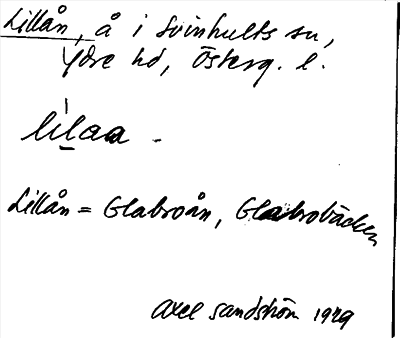 Lillån, å i Svinhults sn,
Ydre hd, Österg. l.
lilaa -
Lillån = Glabroån, Glabrobäcken
Axel Sandström 1929